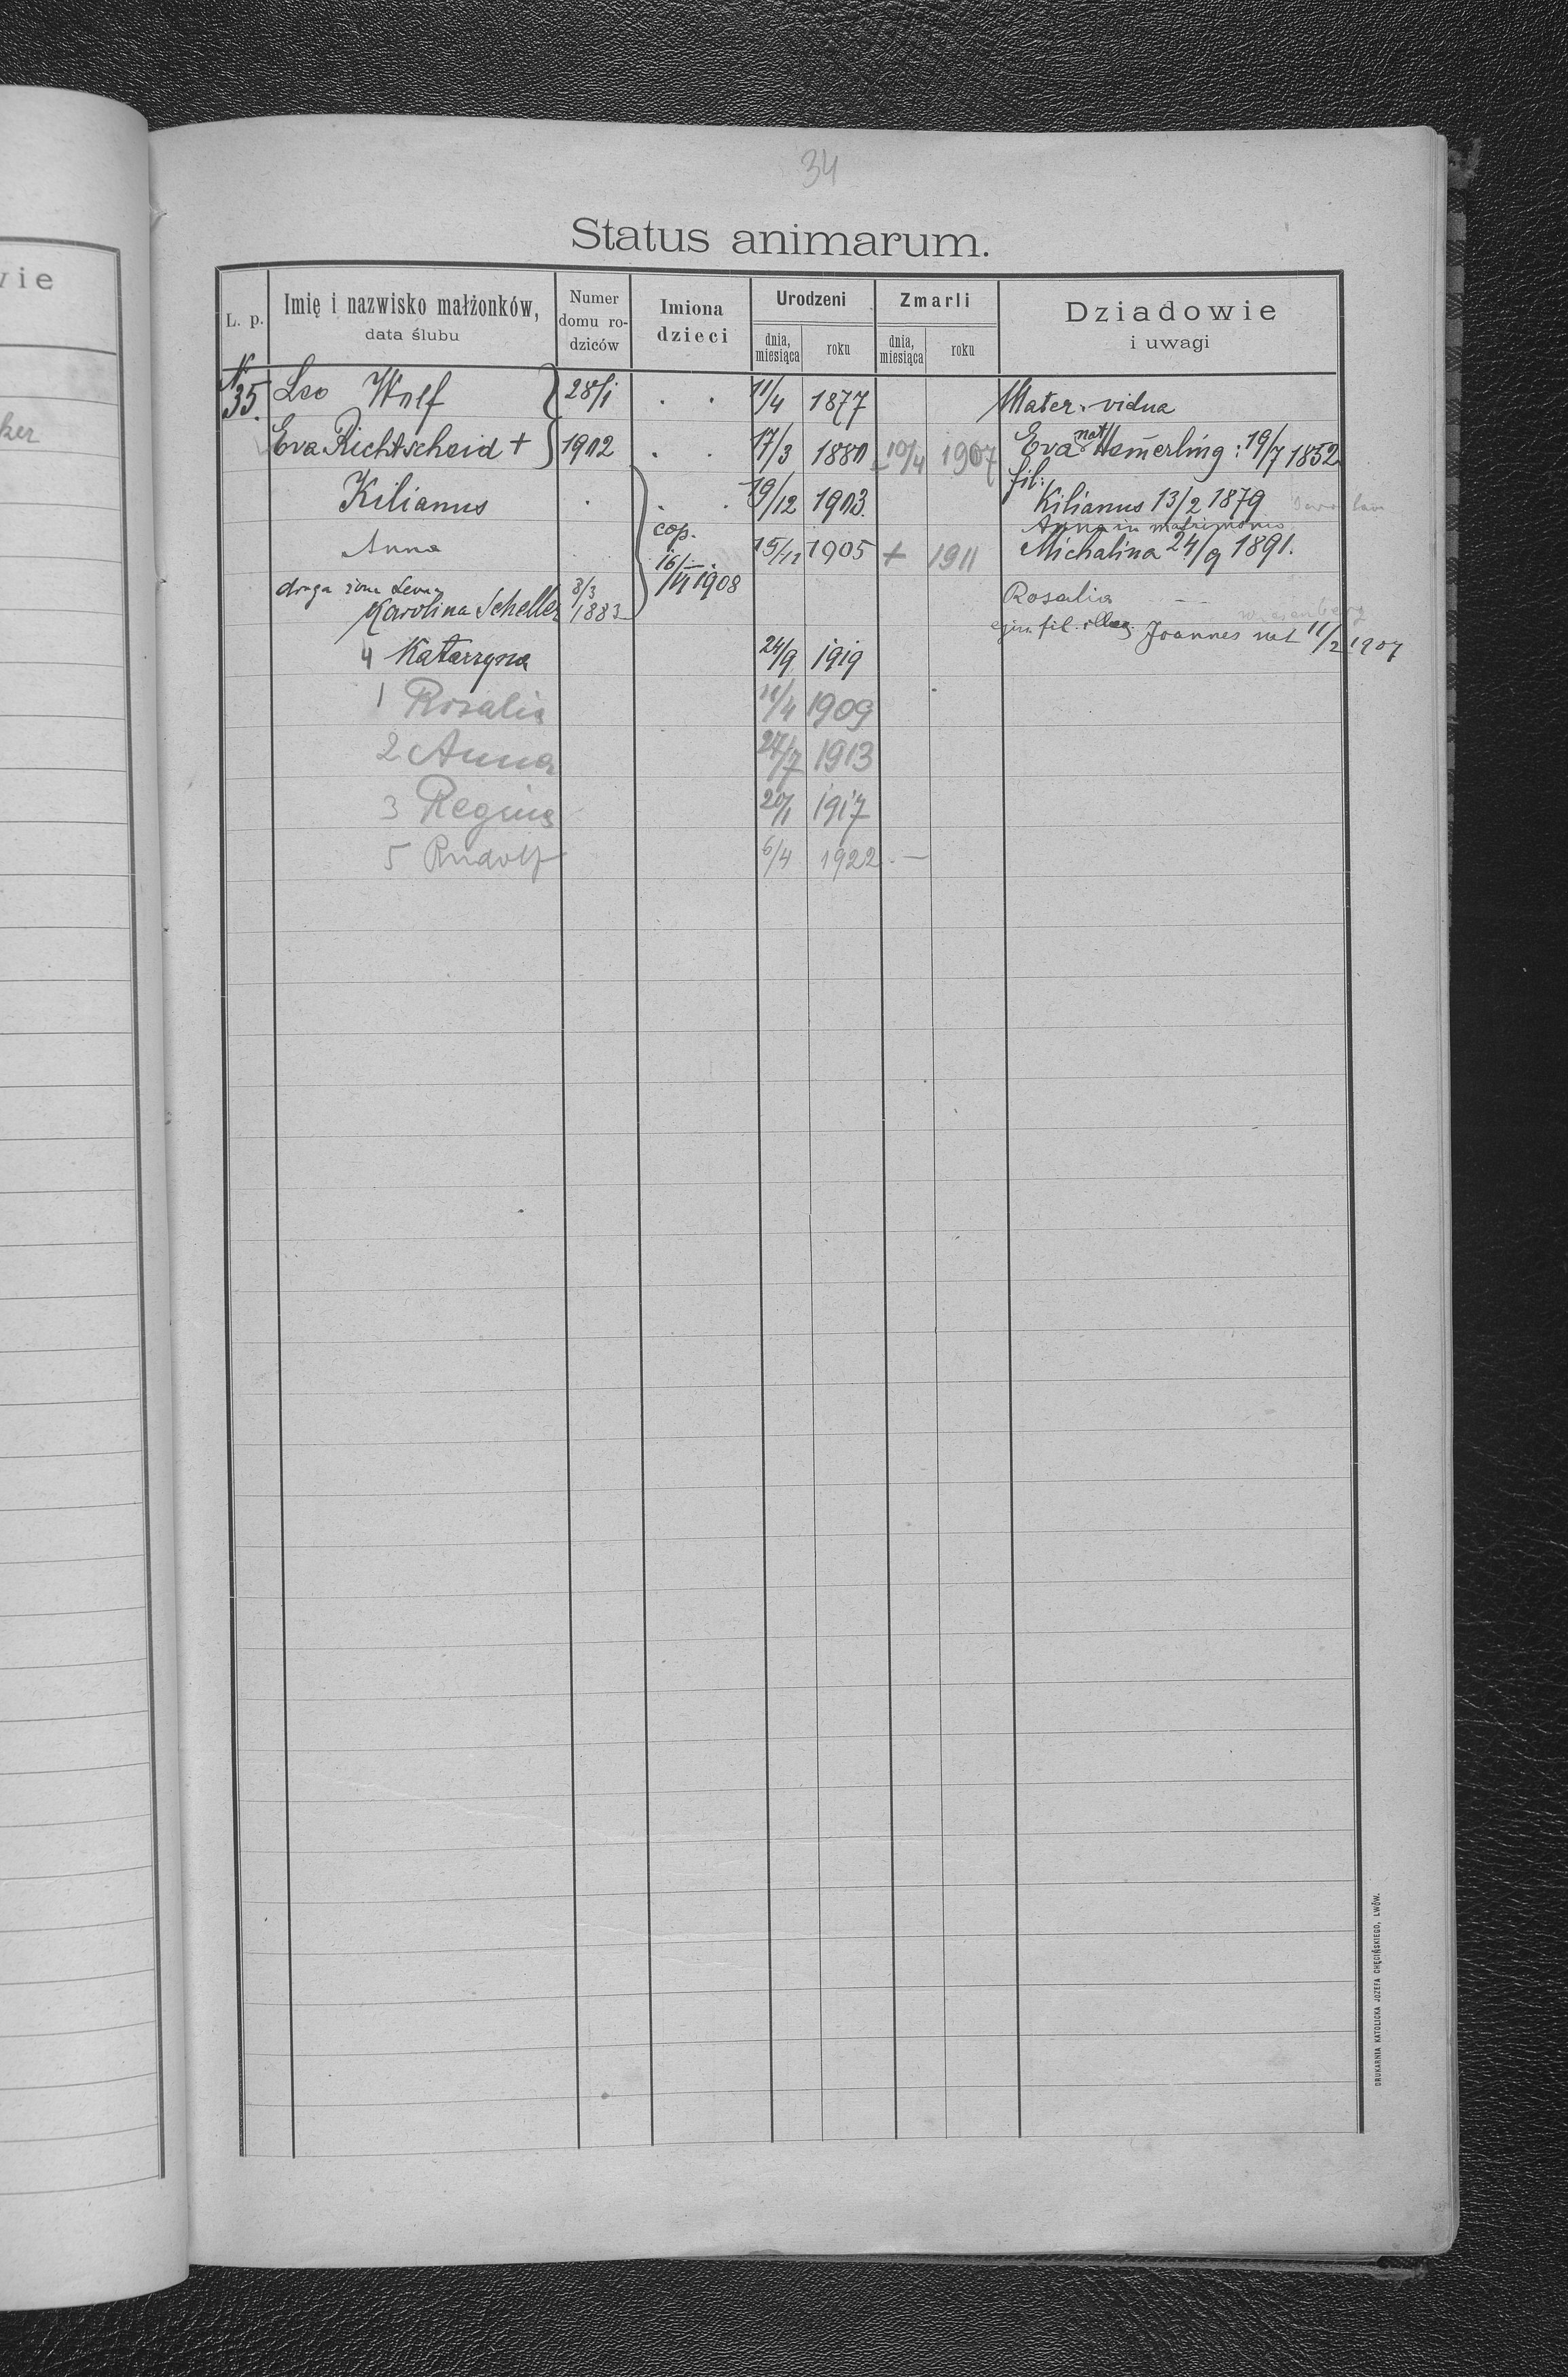 34
Status animarum.
wie
ker
L. p.
Imię i nazwisko małżonków,
data ślubu
Numer
domu ro-
dziców
Imiona
dzieci
Urodzeni
dnia,
miesiąca
roku
Zmarli
dnia,
miesiąca
roku
Dziadowie
i uwagi
N 35. Leo Wolf 28/1 . . 11/4 1877 Mater. vidua
Eva Richtscheid + 1902 . . 17/3 1880 10/4 1907 Eva nat Hamerling: 19/7 1852
Kilianus . . . 19/12 1903. fil: Kilianus 13/2 1879
Anna in matrimonio
Anna cop. 15/12 1905 + 1911 Michalina 24/9 1891.
16/ 1908
druga żona Leona
Karolina Scheller 8/3 1883 Rosalia
ejus fil. illeg. Joannes nat 11/2 1907
4 Katarzyna 24/9 1919
1 Rosalia 11/4 1909
2 Anna 24/7 1913
3 Regina 20/1 1917
5 Rudolf 6/4 1922 . —
DRUKARNIA KATOLICKA JOZEFA CHĘCIŃSKIEGO, LWÓW.